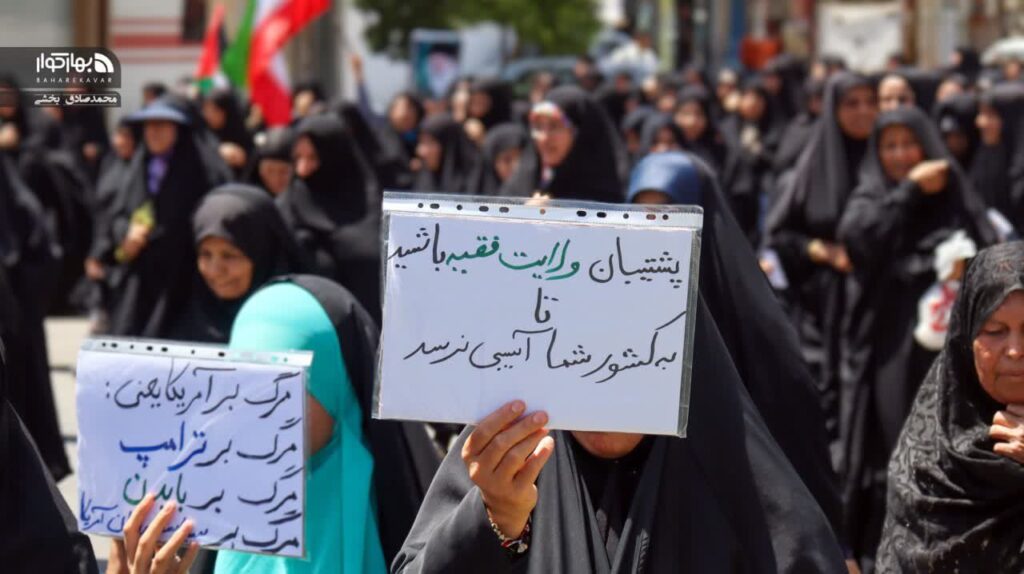 بهارکوار
BAHAREKAVAR
محمدصادق بخشی
پشتیبان ولایت فقیه باشید
تا
به کشور شما آسیبی نرسد
مرگ بر آمریکا یعنی:
مرگ بر ترامپ
مرگ بر بایدن
مرگ بر آمریکا